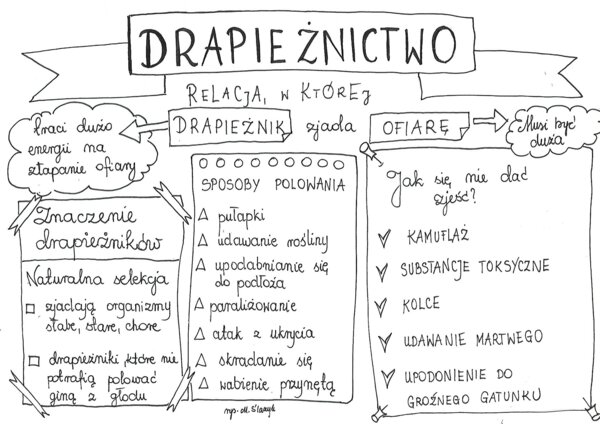 DRAPIEŻNICTWO
RELACJA, W KTÓREJ
DRAPIEŻNIK zjada OFIARĘ
traci dużo
energii na
złapanie ofiary
Musi być
duża
Znaczenie
drapieżników
Naturalna selekcja
zjadają organizmy
słabe, stare, chore
drapieżniki, które nie
potrafią polować
giną z głodu
SPOSOBY POLOWANIA
pułapki
udawanie rośliny
upodabnianie się
do podłoża
paraliżowanie
atak z ukrycia
skradanie się
wabienie przynętą
Jak się nie dać
zjeść?
KAMUFLAŻ
SUBSTANCJE TOKSYCZNE
KOLCE
UDAWANIE MARTWEGO
UPODONIENIE DO
GROŹNEGO GATUNKU